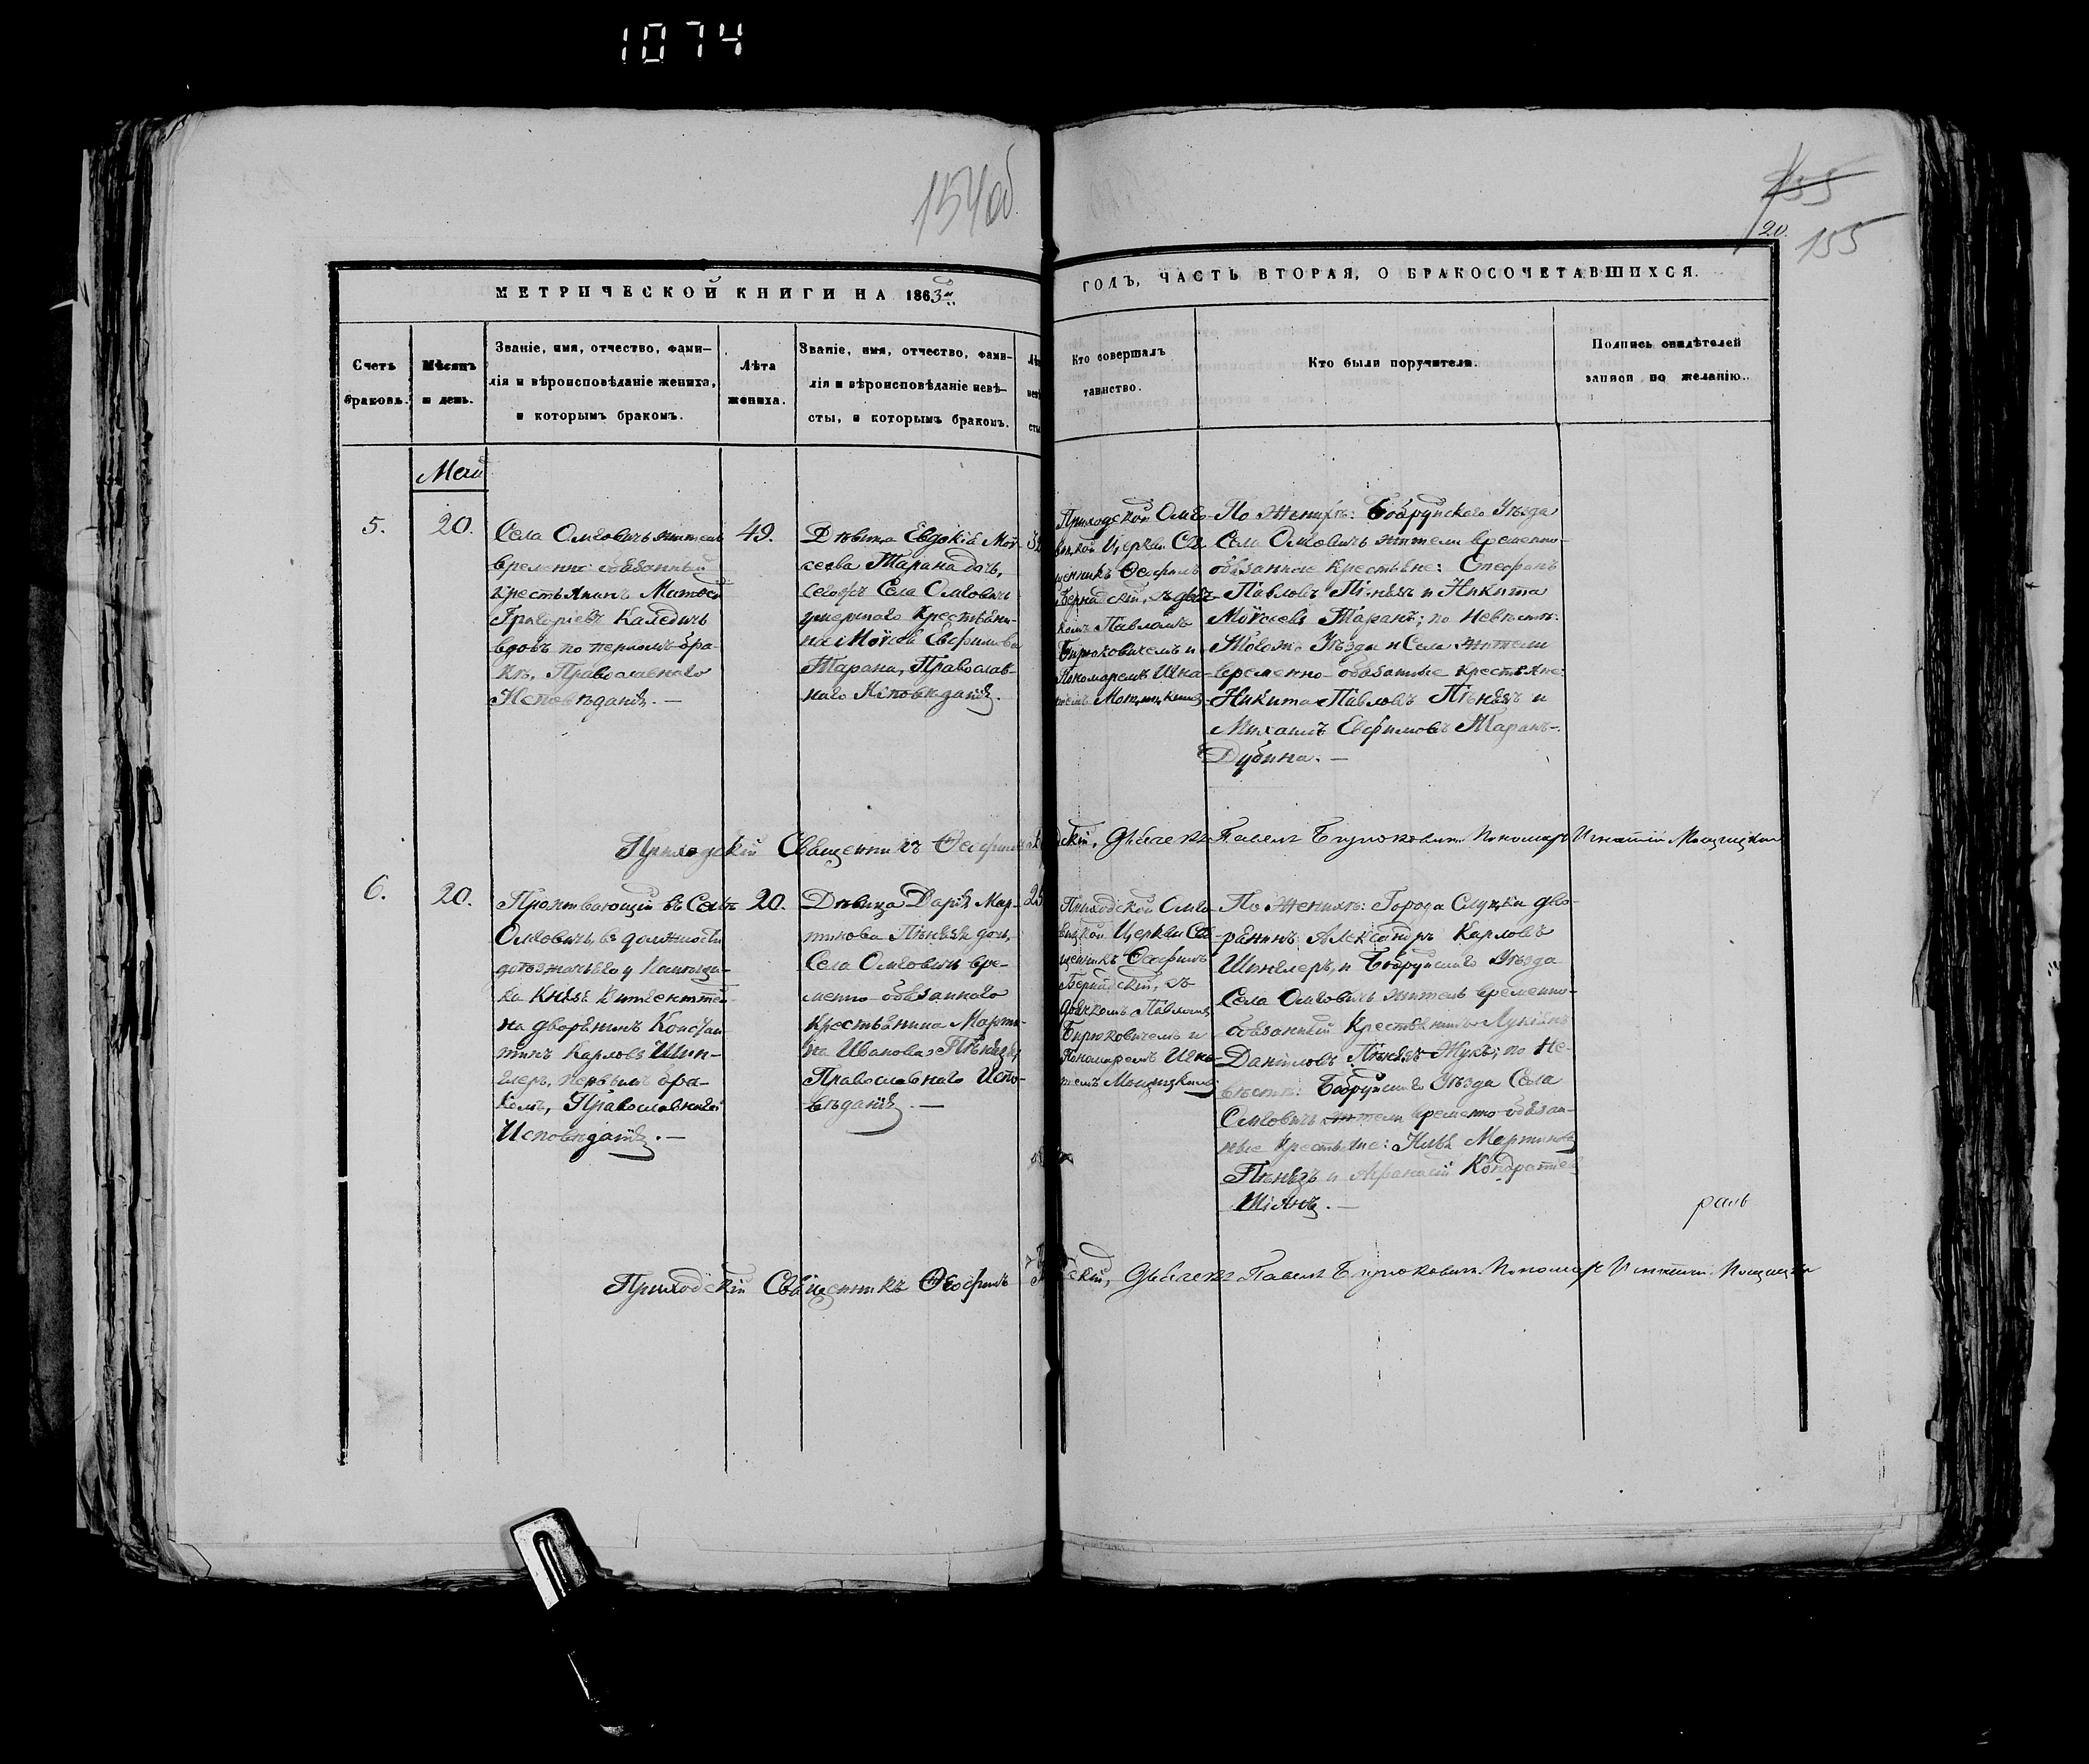 1074
154об
155
20.
155
МЕТРИЧЕСКОЙ КНИГИ НА 1863й
ГОДЪ, ЧАСТЬ ВТОРАЯ, О БРАКОСОЧЕТАВШИХСЯ.
Счетъ
браковъ.
Мѣсяцъ
и день.
Званіе, имя, отчество, фами-
лія и вѣроисповѣданіе жениха,
и которымъ бракомъ.
Лѣта
жениха.
Званіе, имя, отчество, фами-
лія и вѣроисповѣданіе невѣ-
сты, и которымъ бракомъ.
Кто совершалъ
таинство.
Кто были поручители.
Подпись свидѣтелей
записи по желанію.
Май
5.
20.
Села Омговичъ житель
временно обязанный
крестьянинъ
Григорьевъ Каледичъ
вдовъ по первомъ бра-
кѣ, Православнаго
Исповѣданія. —
49.
Дѣвица Евдокія Мои-
сеева Тарана дочь,
Села Омговичъ
умершаго Крестьяни-
на Моисея Евфимова
Тарана, Православ-
наго Исповѣданія.
Приходской Омго-
вицкой Церкви Свя-
щенникъ Ѳеофилъ
Бернадскій, съ дья-
комъ Павломъ
Бирюковичемъ и
Пономаремъ Игна-
тіемъ
По Женихѣ: Бобруйскаго Уѣзда
Села Омговичъ жители временно-
обязанные Крестьяне: Стефанъ
Павловъ Пѣнязь и Никита
Моисеевъ Таранъ; по Невѣстѣ:
Тогожъ Уѣзда и Села жители
временно-обязанные крестьяне
Никита Павловъ Пѣнязь и
Михаилъ Евфимовъ Таранъ-
Дубина. —
Приходскій Священникъ Ѳеофилъ
Дьячекъ Павелъ Бирюковичъ. Пономарь Игнатій
6.
20.
Проживающій въ Селѣ
Омговичъ, въ должности
у Помѣщи-
ка Князя Витгенштей-
на дворянинъ Констан-
тинъ Карловъ Шин-
глеръ, первымъ бра-
комъ, Православнаго
Исповѣданія. —
20.
Дѣвица Дарія Мар-
тинова Пѣнязя дочь,
Села Омговичъ вре-
менно-обязаннаго
Крестьянина Марти-
на Иванова Пѣнязя,
Православнаго Испо-
вѣданія. —
Приходской Омго-
вицкой Церкви Свя-
щенникъ Ѳеофилъ
Бернадскій, съ
дьячкомъ Павломъ
Бирюковичемъ и
Пономаремъ Игна-
тіемъ
По Женихѣ: Города Слуцка дво-
рянинъ Александръ Карловъ
Шинглеръ, и Бобруйскаго Уѣзда
Села Омговичъ житель временно-
обязанный Крестьянинъ Лукіянъ
Даніиловъ Пѣнязь-Жукъ; по Не-
вѣстѣ: Бобруйскаго Уѣзда Села
Омговичъ жители временно-обязан-
ные Крестьяне: Илья Мартиновъ
Пѣнязь и Афанасій Кондратіевъ
Приходскій Священникъ Ѳеофилъ
Дьячекъ Павелъ Бирюковичъ. Пономарь Игнатій